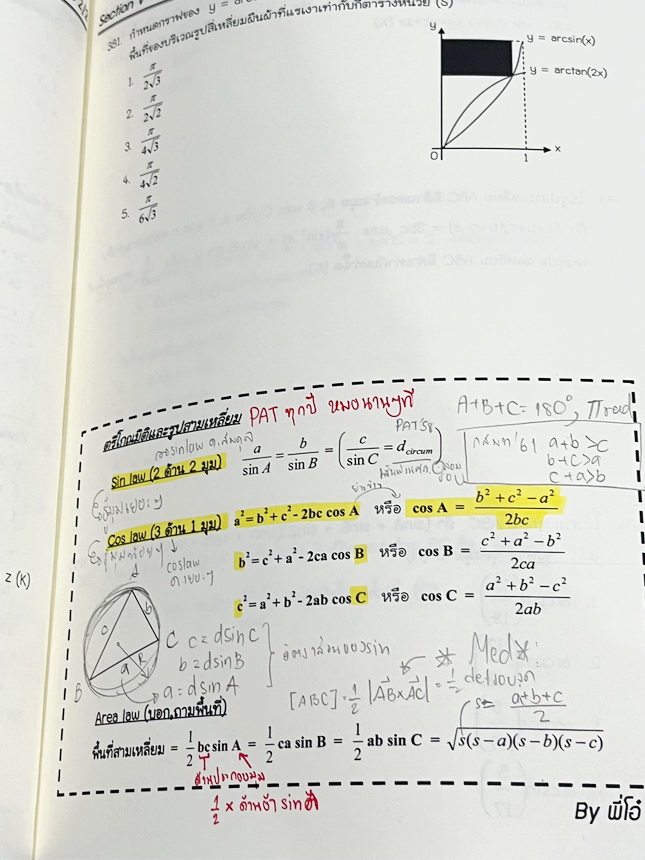 381. กำหนดกราฟของ y =
พื้นที่ของบริเวณรูปสี่เหลี่ยมผืนผ้าที่แรเงาเท่ากับกี่ตารางหน่วย (S)
1. π/2√3
2. π/2√2
3. π/4√3
4. π/4√2
5. π/6√3
y
y = arcsin(x)
y = arctan(2x)
0 1 x
ตรีโกณมิติและรูปสามเหลี่ยม PAT ทุกปี
A+B+C = 180°, π rad
Sin law (2 ด้าน 2 มุม) a/sin A = b/sin B = (c/sin C = d circum)
PAT'58
กสพท'61 a+b>c
b+c>a
c+a>b
Cos law (3 ด้าน 1 มุม) a² = b² + c² - 2bc cos A หรือ cos A = (b² + c² − a²)/2bc
coslaw
b² = c² + a² - 2ca cos B หรือ cos B = (c² + a² − b²)/2ca
c² = a² + b² - 2ab cos C หรือ cos C = (a² + b² − c²)/2ab
z (K)
A
c b
a R
B C
c = dsinC
b = dsinB
a = dsinA
อัตราส่วนของsin
Med
[ABC] = 1/2 |AB×AC| = 1/2 det
s = (a+b+c)/2
Area law (บอก,ถามพื้นที่)
พื้นที่สามเหลี่ยม = 1/2 bc sin A = 1/2 ca sin B = 1/2 ab sin C = √s(s−a)(s−b)(s−c)
ด้านประกอบมุม
1/2 × ด้านข้าง sin
By พี่โอ๋